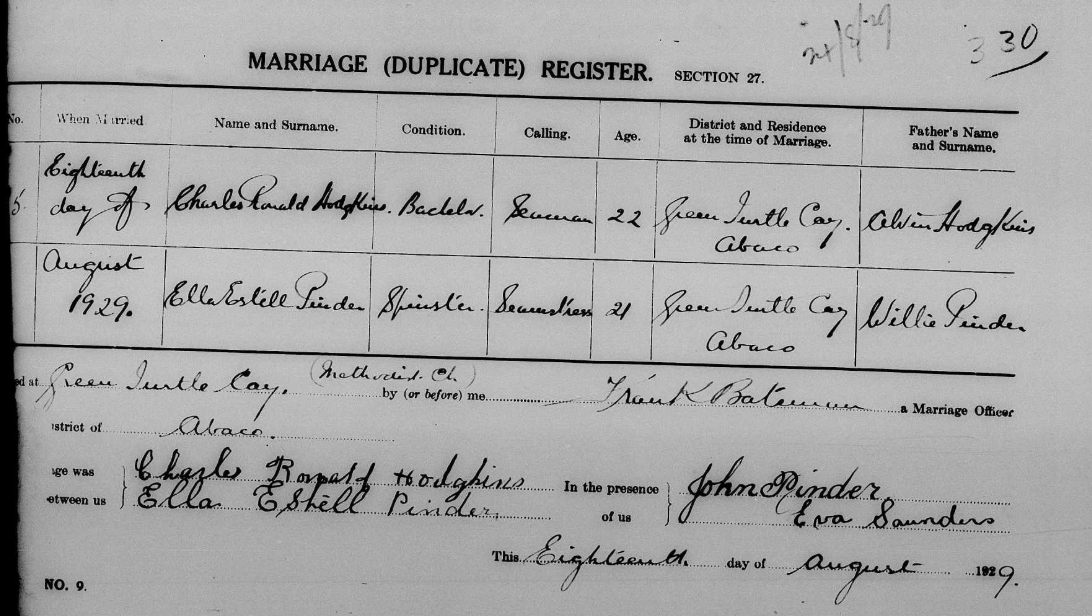 24/8/29
3 30
MARRIAGE (DUPLICATE) REGISTER. SECTION 27.
No. When Married Name and Surname. Condition. Calling. Age. District and Residence at the time of Marriage. Father's Name and Surname.
5. Eighteenth day of Charles Ronald Hodgkins. Bachelor. Seaman 22 Green Turtle Cay. Abaco Alvin Hodgkins
August 1929. Ella Estell Pinder Spinster. Seamstress 21 Green Turtle Cay Abaco Willie Pinder
ed at Green Turtle Cay. (Methodist Ch) by (or before) me Frank Bateman a Marriage Officer
istrict of Abaco.
ge was Charles Ronald Hodgkins In the presence John Pinder
etween us Ella Estell Pinder. of us Eva Saunders
This Eighteenth. day of August 1929.
NO. 9.